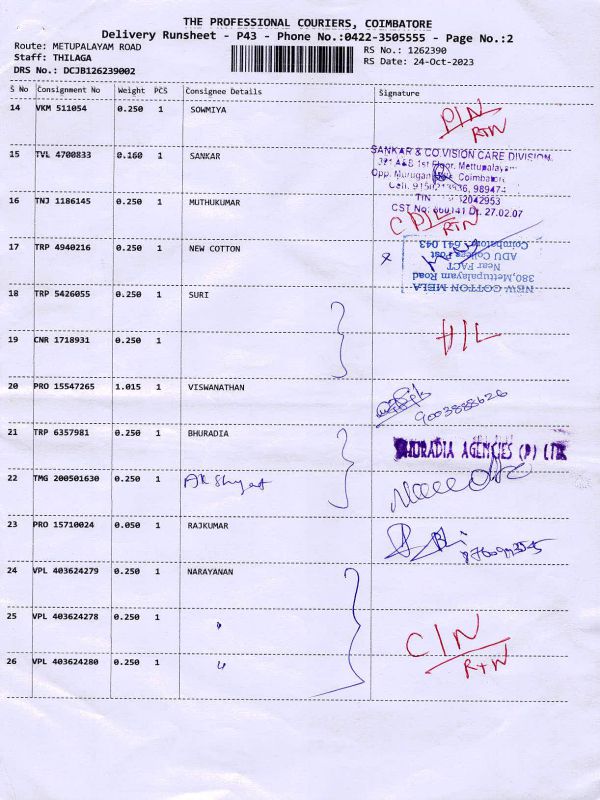 THE PROFESSIONAL COURIERS, COIMBATORE
Delivery Runsheet - P43 - Phone No.:0422-3505555 - Page No.:2
Route: METUPALAYAM ROAD
RS No.: 1262390
Staff: THILAGA
RS Date: 24-Oct-2023
DRS No.: DCJB126239002
S No Consignment No Weight PCS Consignee Details Signature
14 VKM 511054 0.250 1 SOWMIYA
RTN
15 TVL 4700833 0.160 1 SANKAR
SANKAR & CO.VISION CARE DIVISION.
1st Floor, Mettupalayam
Opp. Murugan Coimbatore
16 TNJ 1186145 0.250 1 MUTHUKUMAR
TIN
CST No: 660141 Dt. 27.02.07
RTN
17 TRP 4940216 0.250 1 NEW COTTON
NEW COTTON MELA
380,Mettupalayam Road
Near FACT
ADU College Post
Coimbatore - 641 043
18 TRP 5426055 0.250 1 SURI
19 CNR 1718931 0.250 1
20 PRO 15547265 1.015 1 VISWANATHAN
9003888626
21 TRP 6357981 0.250 1 BHURADIA
BHURADIA AGENCIES (P) LTD
22 TMG 200501630 0.250 1
23 PRO 15710024 0.050 1 RAJKUMAR
24 VPL 403624279 0.250 1 NARAYANAN
25 VPL 403624278 0.250 1 "
C/N
RTN
26 VPL 403624280 0.250 1 "